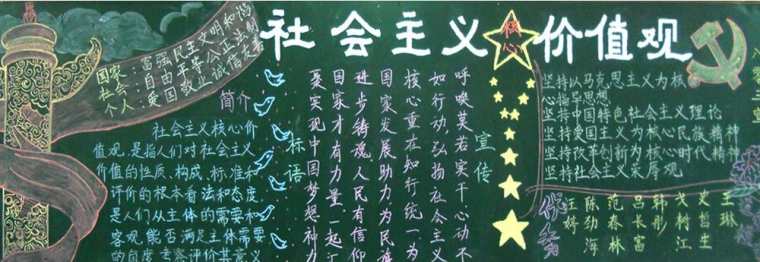 社会主义核心价值观
国家：富强民主文明和谐
社会：自由平等公正法制
个人：爱国敬业诚信友善
简介
社会主义核心价
值观是指人们对社会主义
价值的性质、构成、标准和
评价的根本看法和态度,
是人们从主体的需要和
客观能否满足主体需要
的自度考察评价其意义
标语
呼唤莫若实干心动不
如行动弘扬社会主义
核心重在知行统一为
国家发展助力为民族
进步铸魂人民有信仰
国家才有力量一起汇
聚实现中国梦想神力
宣传
坚持以马克思主义为核
心指导思想
坚持中国特色社会主义理论
坚持爱国主义为核心民族精神
坚持改革创新为核心时代精神
坚持社会主义荣辱观
王琳
史哲生
戈树江
韩彤
吕长富
范春林
陈劲海
汪娇